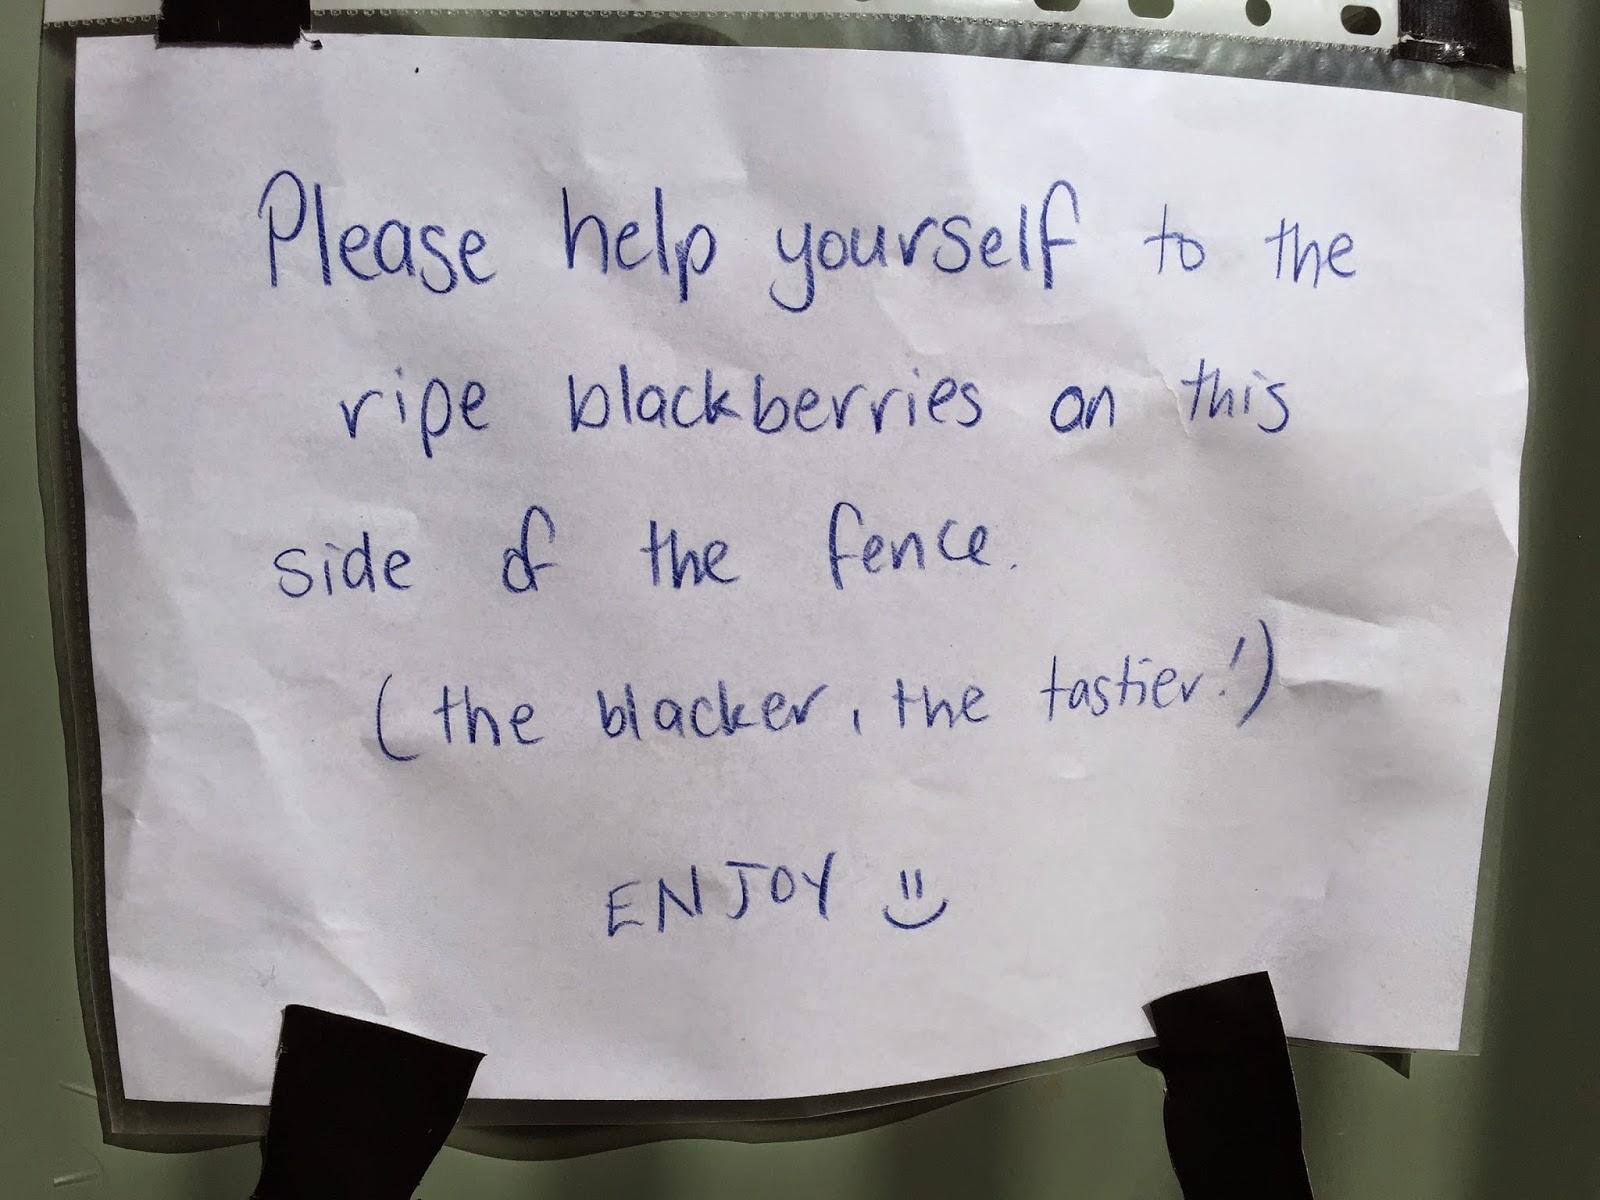 Please help yourself to the
ripe blackberries on this
side of the fence.
(the blacker, the tastier!)
ENJOY